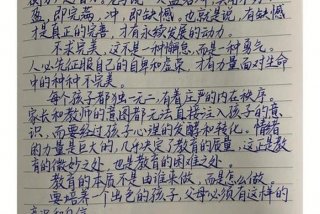 盈,即完满,冲,即缺憾。也就是说,有缺憾
才是真正的完善,才有永续发展的动力。
不求完美,这不是一种懈怠,而是一种勇气。
人必先征服自己的自卑和虚荣,才有力量面对生命
中的种种不完美。
每个孩子都独一无二,有着庄严的内在秩序。
家长和教师的意图都无法直接注入孩子的意
识,而要经过孩子心理的发酵和转化。情绪
的力量是巨大的,几乎决定了教育的质量,这正是教
育的微妙之处,也是教育的困难之处。
教育的本质不是由谁来做,而是怎么做。
要培养一个出色的孩子,父母必须有这样的